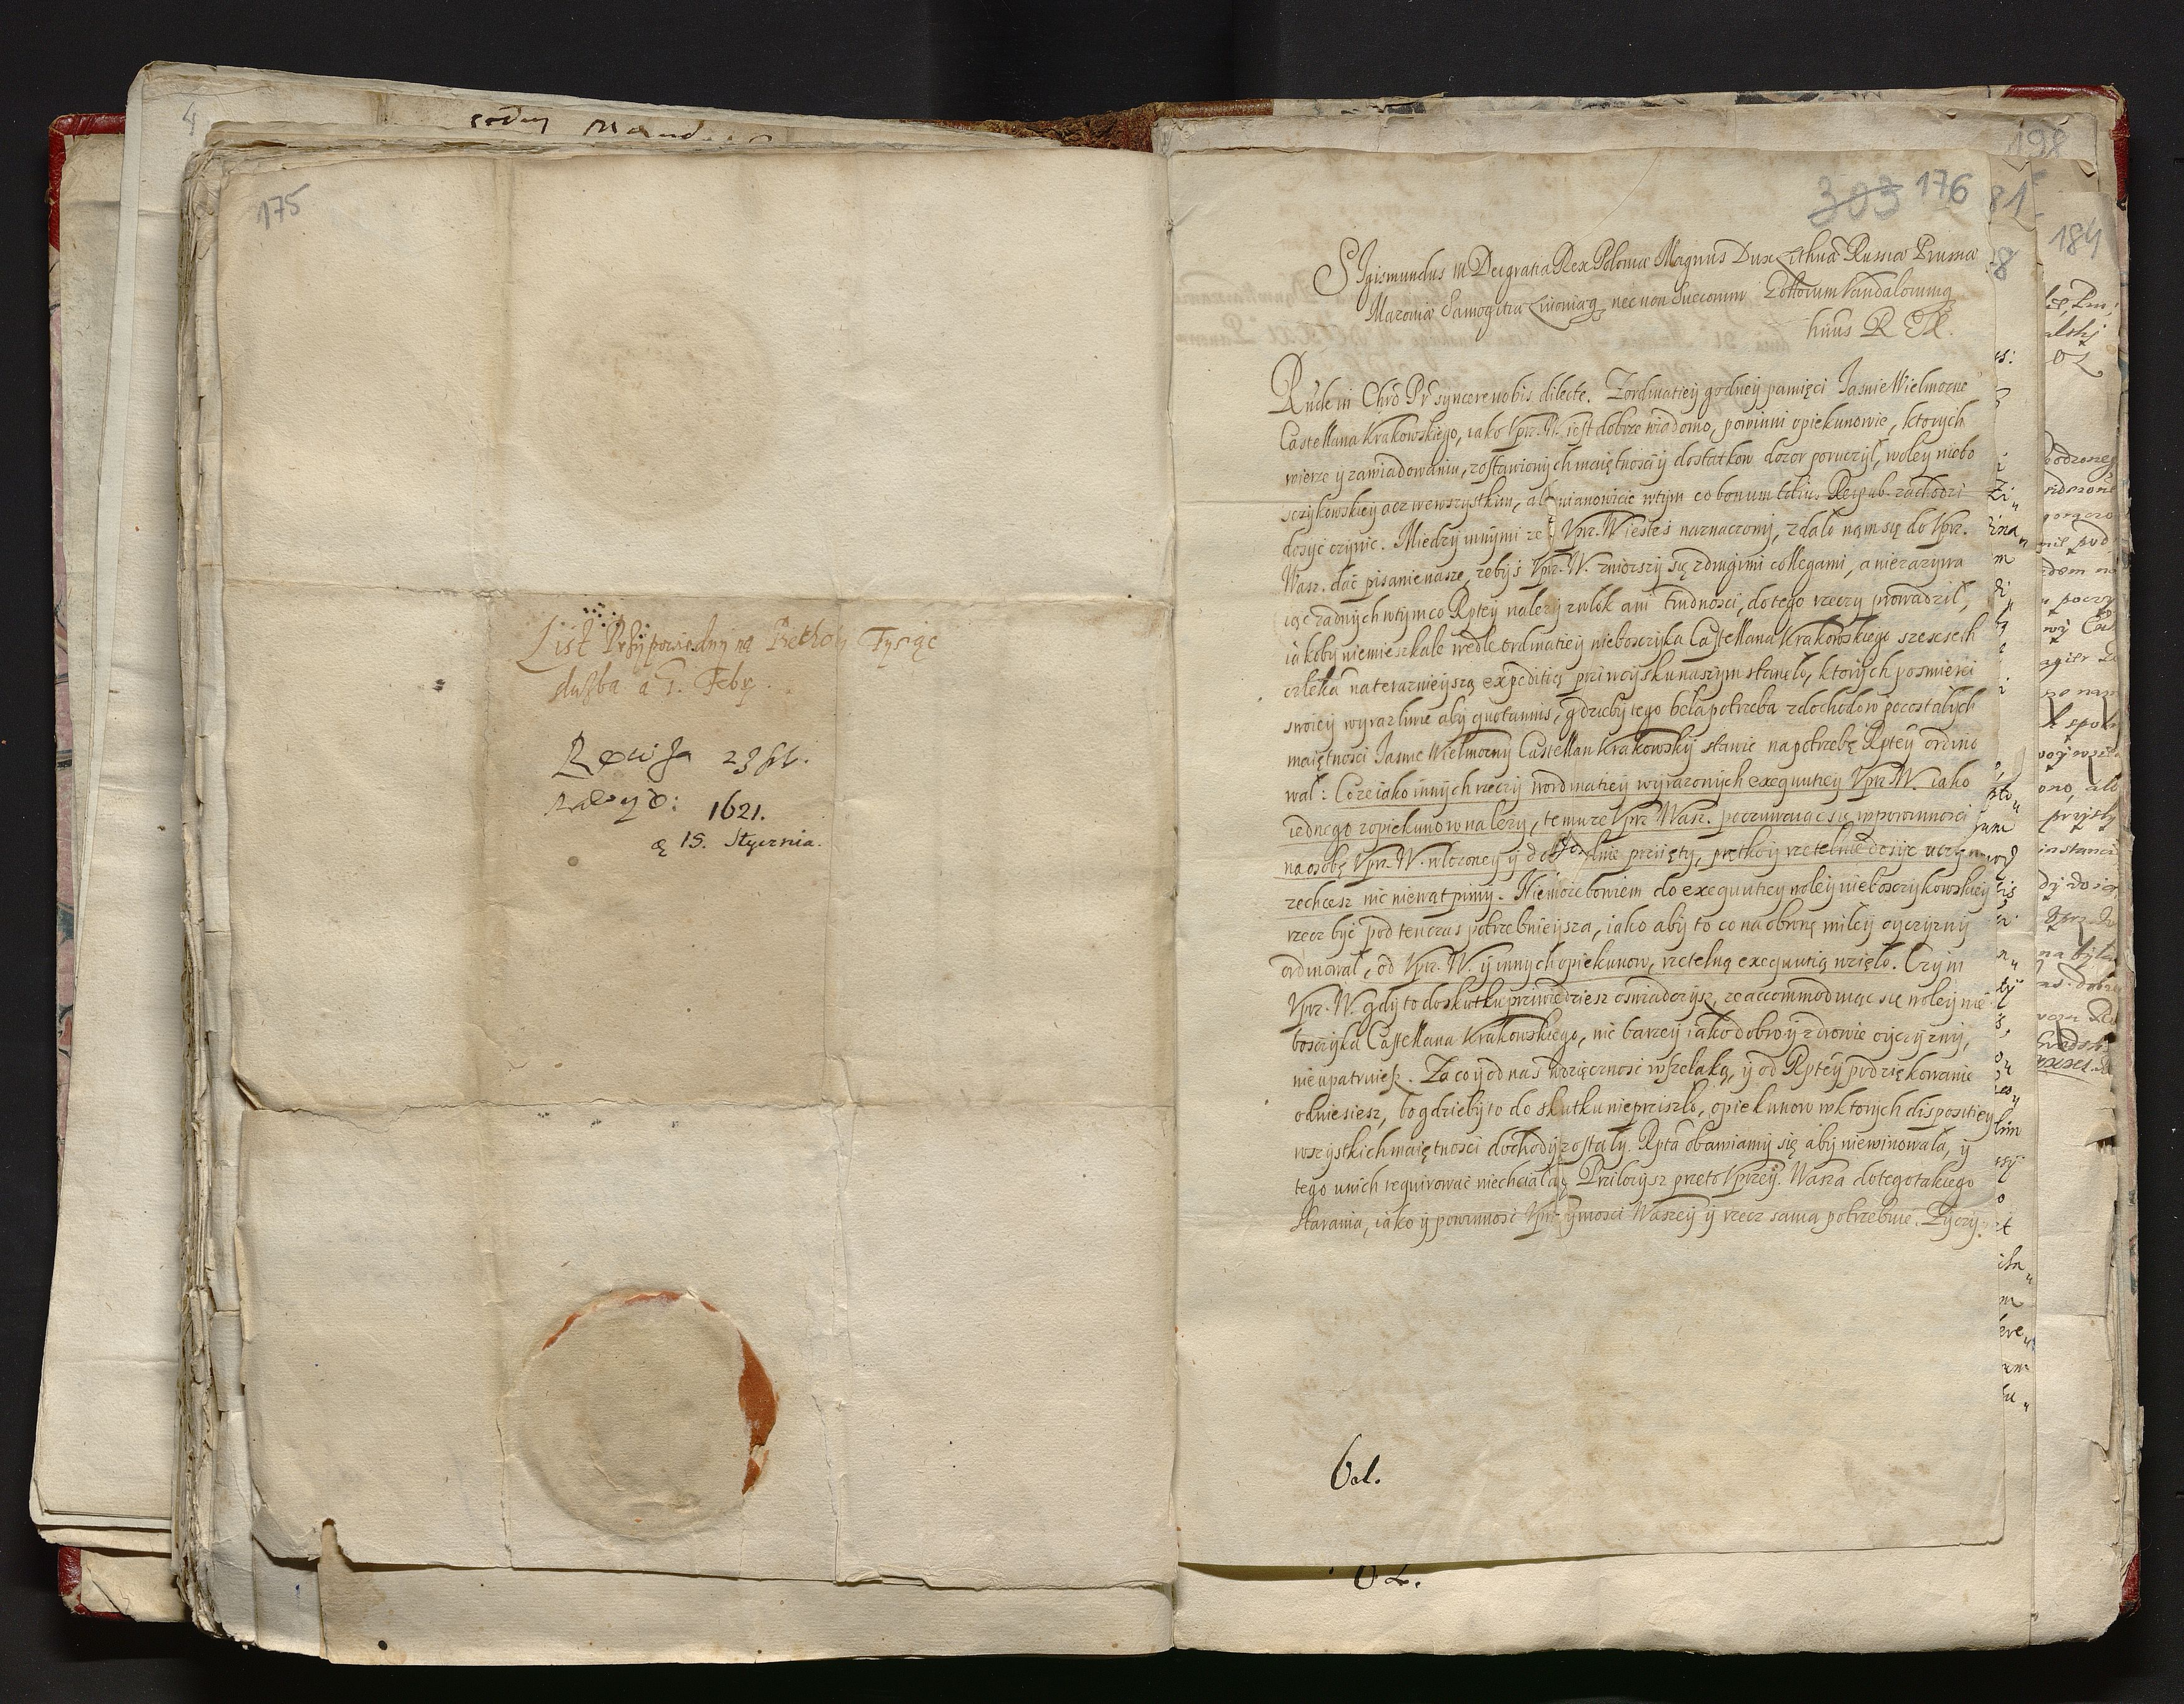 175
List Przypowiedny na Piechoty Tysiąc
służba a 1. Febr.
Rewisa
1621.
15. Stycznia.
303 176
SIgismundus III Dei gratia Rex Poloniæ Magnus Dux Lithuã Russiæ Prussiæ
Mazouiæ Samogitiæ Liuoniæq, nec non Suecorum Gottorum Vandalorumq
hæus REX.
Rnde in Chrõ Pr syncere nobis dilecte. Z ordinatiey godney pamięci Jasnie Wielmozne
Castellana Krakowskiego, iako Vprz. W. iest dobrze wiadomo, powinni opiekunowie, ktorych
wierze y zawiadowaniu, zostawionych maiętnosci y dostatkow dozor poruczył, woley niebo
sczykowskiey acz wewszystkim, ale mianowicie wtym co bonum totius Reipub. zachodzi
dosyć czynic. Miedzy innymi ze y Vprz. W iesteś naznaczony, zdało nam się do Vprz.
Wasz. dać pisanie nasze, zebyś Vprz. W. zniozszy się z drugimi collegami, a niezazywa
iąc zadnych wtym co Rptey nalezy zwłok ani trudnosci, do tego rzeczy prowadził,
iakoby niemieszkale wedle ordinatiey niebosczyka Castellana Krakowskiego szescseth
człeka na terazniejszą expeditią przi woysku naszym stanęło, ktorych po smierci
swoiey wyrazliwie aby quotannis, gdzieby tego beła potrzeba z dochodow pozostałych
maiętnosci Jasnie Wielmozny Castellan Krakowsky stawic na potrzebę Rptey ordino
wał: Co ze iako innych rzeczy w ordinatiey wyrazonych exequutiey Vprz W. iako
iednego z opiekunow nalezy, temu ze Vprz Wasz. poczuwaiąc się w powinnosci
na osobę Vprz. W. włozoney y do przięty, prętko y rzetelnie dosyc uczynic
zechcesz nic niewątpimy. Niemoze bowiem do exequutiey woley niebosczykowskiey
rzecz byc pod ten czas potrzebnieysza, iako aby to co na obronę miłey oyczyzny
ordinował, od Vprz. W. y innych opiekunow, rzetelną exequutią wzięło. Czym
Vprz. W. gdy to do skutku przywiedziesz oswiadczysz, ze accommoduiąc się woley nie
bosczyka Castellana Krakowskiego, nic barzey iako dobro y zdrowie oyczyzny,
nie upatruiesz. Za co y od nas wdzięcznosc wszelaką, y od Rptey podziękowanie
odniesiesz, bo gdzieby to do skutku nieprziszło, opiekunow w ktorych dispositiey
wszystkich maiętnosci dochody zostały. Rpta obawiamy się aby niewinowała, y
tego unich requirowac niechciała. Prziłozysz przeto Vprzey. Wasza do tego takiego
starania, iako y powinnosc Vprzeymosci Waszey y rzecz sama potrzebuie. Zyczy
198
81
184